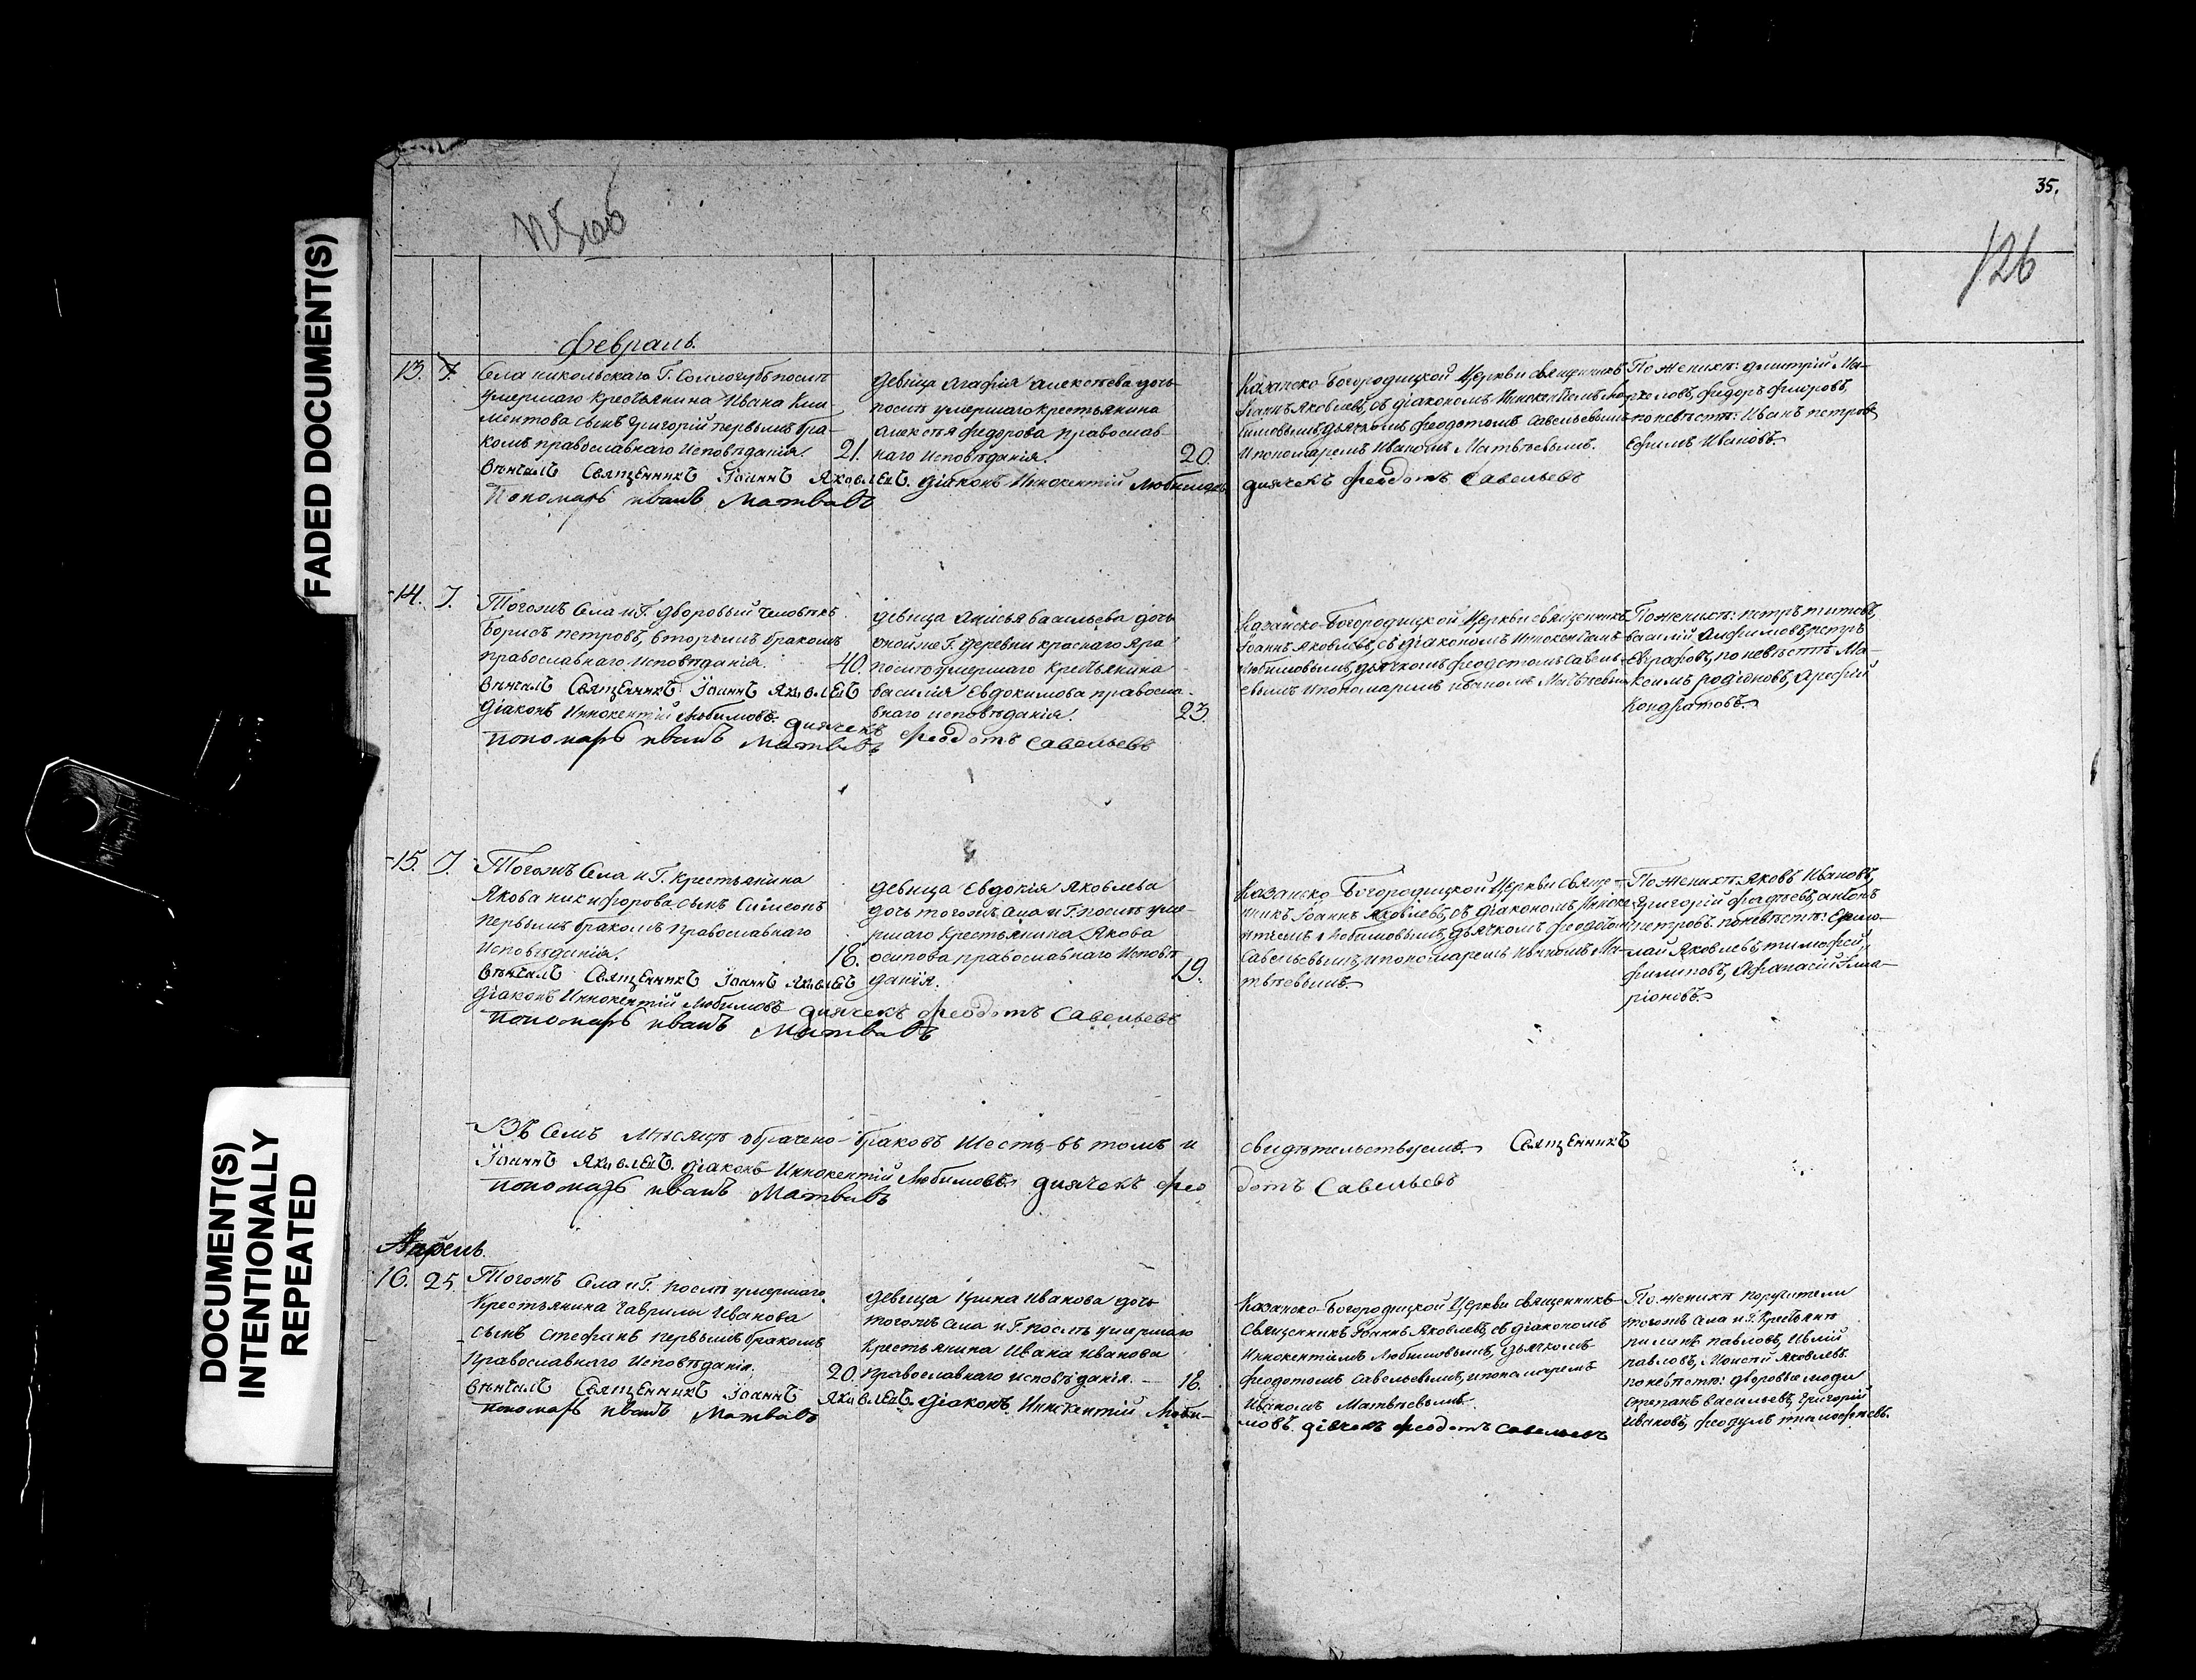 FADED DOCUMENT(S)
DOCUMENT(S)
INTENTIONALLY
REPEATED
35.
126
Февраль.
13. 7.
Села никольскаго Г. Соллогубъ послѣ
умершаго крестьянина Ивана Кли-
ментова сынъ Григорій первымъ бра-
комъ православнаго исповѣданія. 21.
девица Агафія алексѣева дочь
послѣ умершаго крестьянина
алексѣя федорова православ-
наго исповѣданія. 20.
Казанско-Богородицкой Церкви священникъ
Іоаннъ Яковлевъ, съ діакономъ Иннокентіемъ Лю-
бимовымъ, дьячкомъ феодотомъ Савельевымъ
и пономаремъ Иваномъ Матвѣевымъ.
По женихѣ: дмитрій Ма-
ркеловъ, федоръ
по невѣстѣ: Иванъ петровъ,
Ефимъ Ивановъ.
вѣнчалъ Священникъ Іоаннъ Яковлевъ. діаконъ Иннокентій Любимовъ
диячекъ феодотъ Савельевъ
Пономарь иванъ Матвѣевъ
14. 7.
Тогожъ Села и Г. дворовый человѣкъ
борисъ петровъ, вторымъ бракомъ
православнаго исповѣданія. 40.
девица Анисья васильева дочь
оной же Г. деревни краснаго Яра
послѣ умершаго крестьянина
василія Евдокимова правосла-
внаго исповѣданія. 23.
Казанско-Богородицкой Церкви священникъ
Іоаннъ Яковлевъ, съ діакономъ Иннокентіемъ
Любимовымъ, дьячкомъ феодотомъ Савель-
евымъ и пономаремъ иваномъ Матвѣевымъ
По женихѣ: петръ титовъ,
василій Анфимовъ, петръ
Евграфовъ, по невѣстѣ Ма-
ксимъ родіоновъ, Арефій
Кондратовъ.
вѣнчалъ Священникъ Іоаннъ Яковлевъ
діаконъ Иннокентій Любимовъ. диячекъ феодотъ Савельевъ
пономарь иванъ Матвѣевъ
15. 7.
Тогожъ Села и Г. крестьянина
Якова никифорова сынъ Симеонъ
первымъ бракомъ православнаго
исповѣданія. 18.
девица Евдокія Яковлева
дочь тогожъ села и Г. послѣ уме-
ршаго крестьянина Якова
осипова православнаго исповѣ-
данія. 19.
Казанско-Богородицкой Церкви свяще-
нникъ Іоаннъ Яковлевъ, съ діакономъ Инноке-
нтіемъ Любимовымъ, дьячкомъ феодотомъ
Савельевымъ, и пономаремъ Иваномъ Ма-
твѣевымъ.
По женихѣ: Яковъ Ивановъ,
Григорій фадѣевъ, антонъ
петровъ. по невѣстѣ: Ермо-
лай Яковлевъ, тимофей
филиповъ, Афанасій Ила-
ріоновъ.
вѣнчалъ Священникъ Іоаннъ Яковлевъ
діаконъ Иннокентій Любимовъ диячекъ феодотъ Савельевъ
пономарь иванъ Матвѣевъ
Въ Семъ Мѣсяцѣ обрачено браковъ Шесть, въ томъ и свидѣтельствуемъ. Священникъ
Іоаннъ Яковлевъ. діаконъ Иннокентій Любимовъ. диячекъ феодотъ Савельевъ
пономарь иванъ Матвѣевъ
Апрель.
16. 25.
Тогожъ Села и Г. послѣ умершаго
Крестьянина Гаврилы Иванова
сынъ Стефанъ первымъ бракомъ
православнаго исповѣданія. 20.
девица Ирина Иванова дочь
тогожъ села и Г. послѣ умершаго
Крестьянина Ивана Иванова
православнаго исповѣданія. 18.
Казанско-Богородицкой Церкви священникъ
Священникъ Іоаннъ Яковлевъ, съ діакономъ
Иннокентіемъ Любимовымъ, дьячкомъ
феодотомъ Савельевымъ, и пономаремъ
Иваномъ Матвѣевымъ.
По женихѣ поручители
тогожъ Села и Г. крестьяне
павловъ,
павловъ, Моисей Яковлевъ.
по невѣстѣ: дворовые люди
степанъ васильевъ, Григорій
Ивановъ, феодулъ тимофѣевъ.
вѣнчалъ Священникъ Іоаннъ Яковлевъ. діаконъ Иннокентій Люби-
мовъ. діячекъ феодотъ савельевъ
пономарь иванъ Матвѣевъ